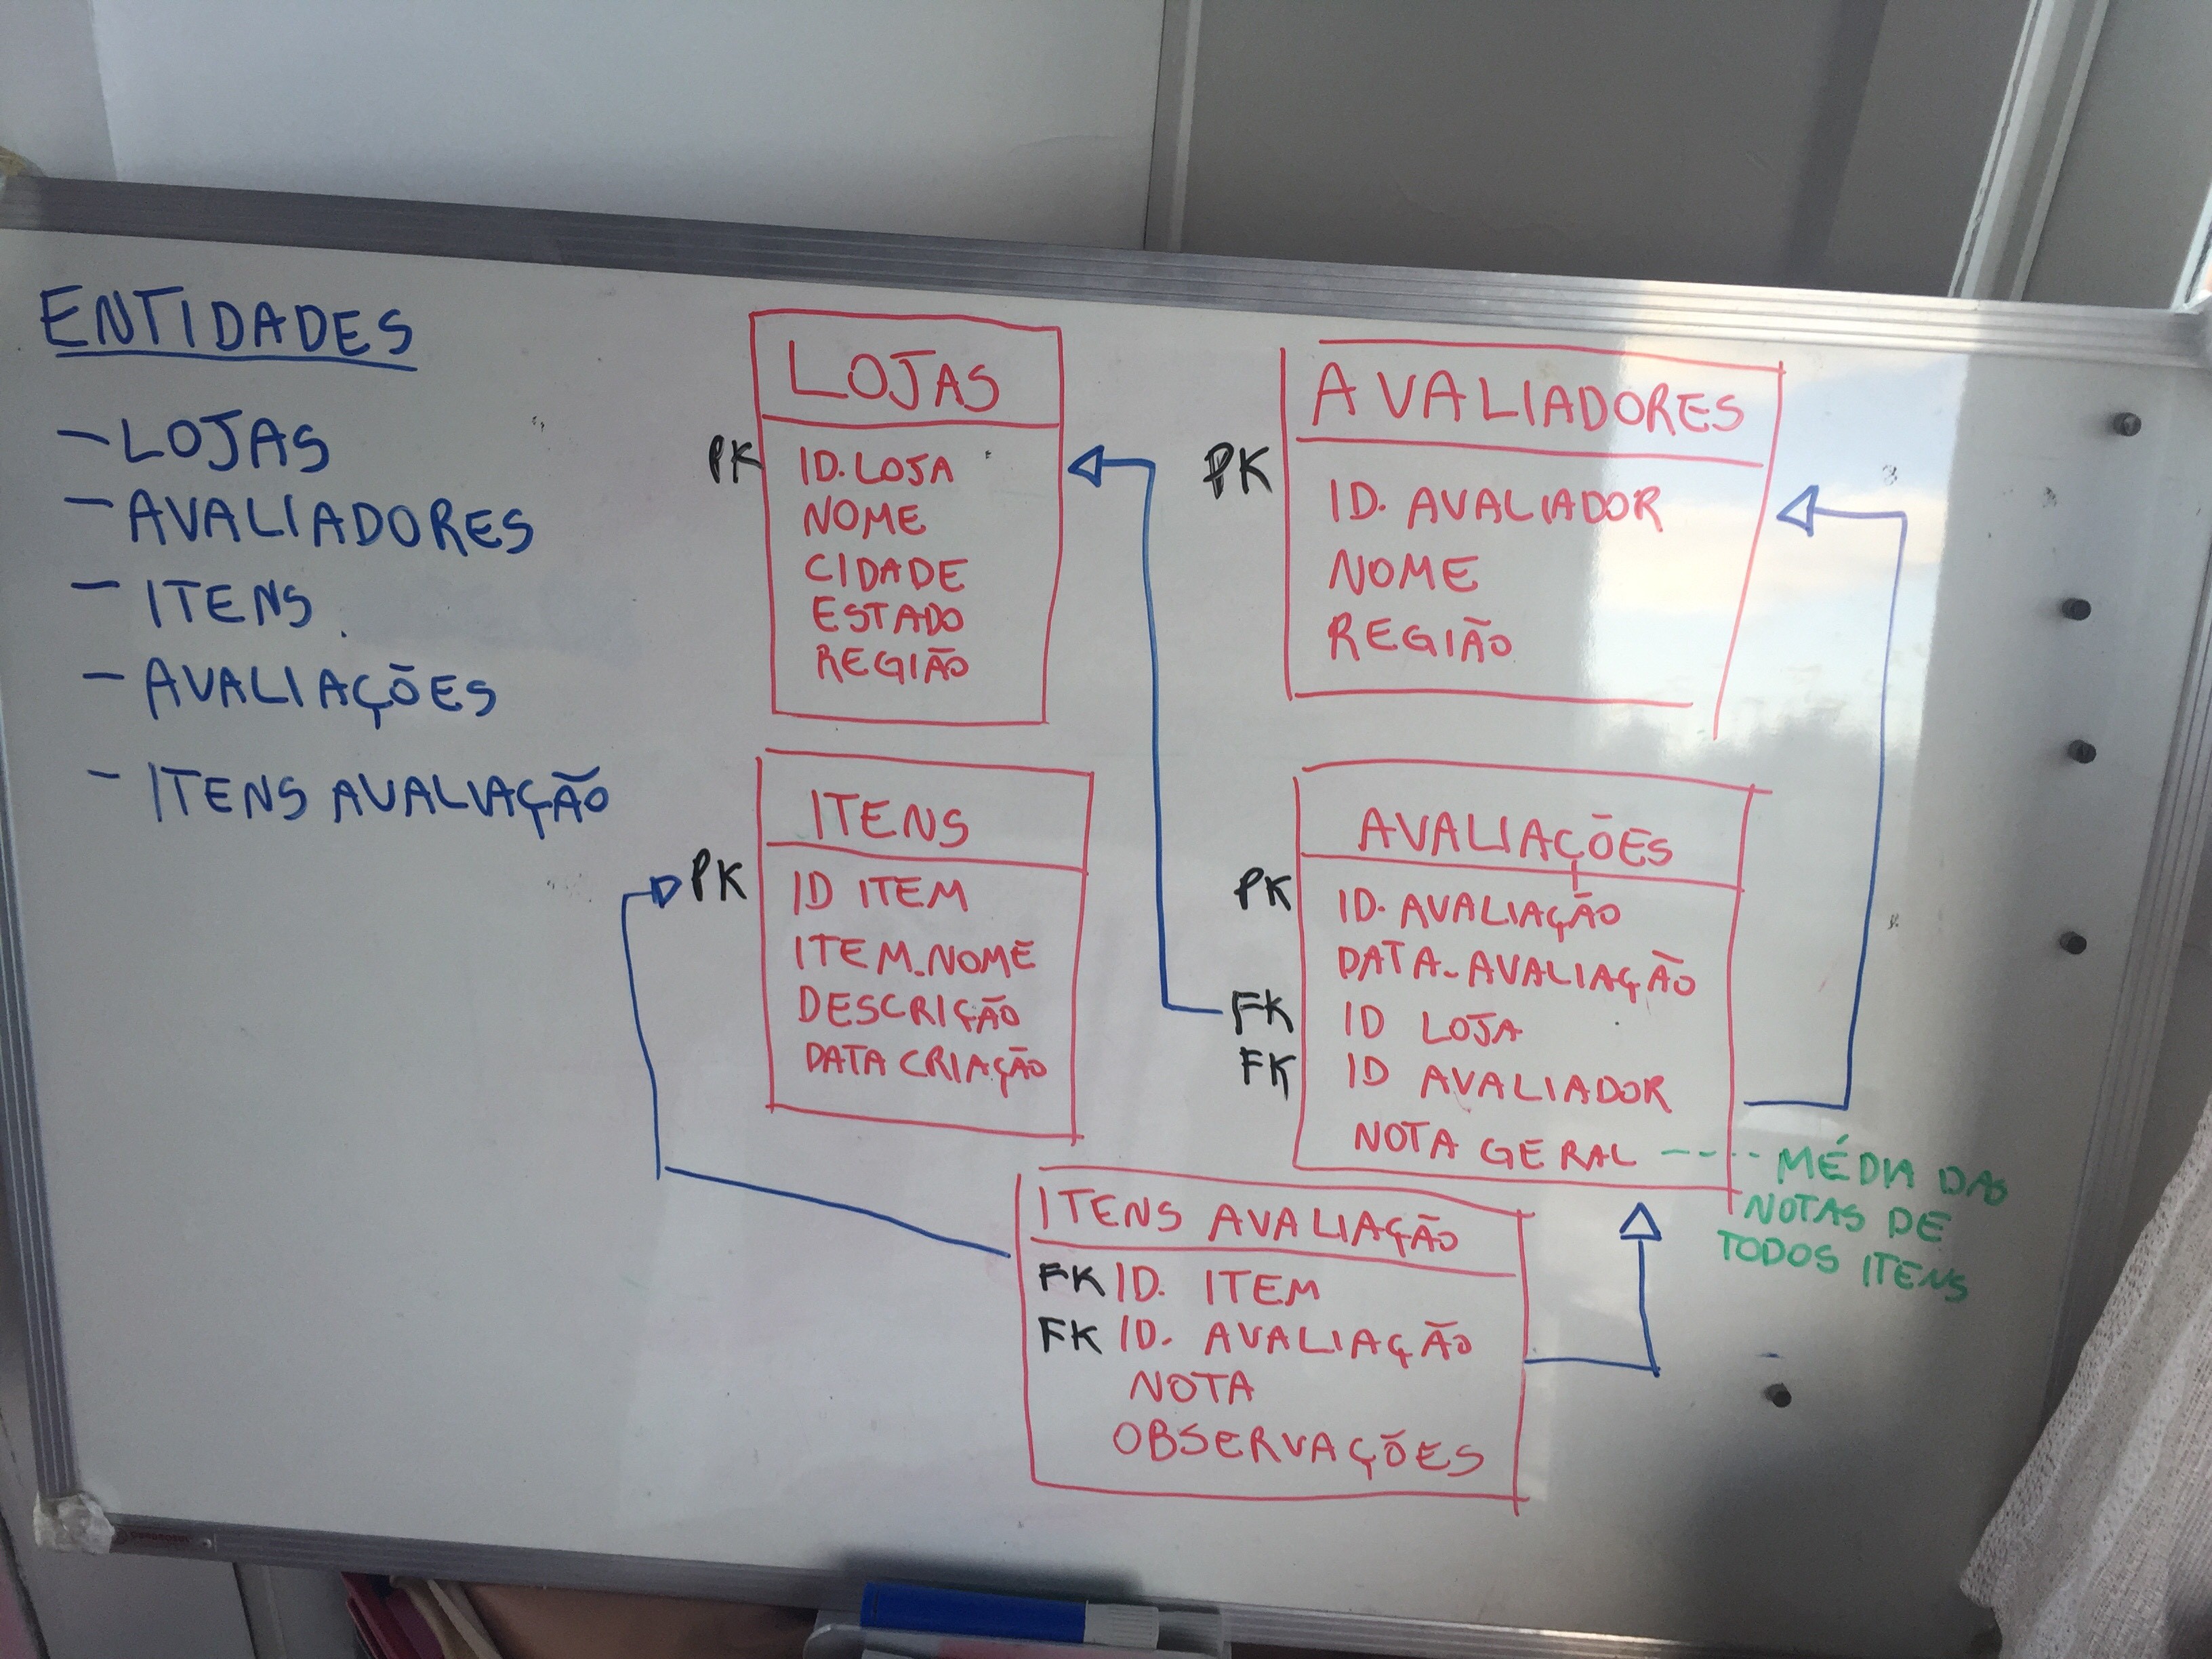 ENTIDADES
- LOJAS
- AVALIADORES
- ITENS
- AVALIAÇÕES
- ITENS AVALIAÇÃO
LOJAS
PK ID.LOJA
NOME
CIDADE
ESTADO
REGIÃO
AVALIADORES
PK ID. AVALIADOR
NOME
REGIÃO
ITENS
PK ID ITEM
ITEM_NOME
DESCRIÇÃO
DATA CRIAÇÃO
AVALIAÇÕES
PK ID. AVALIAÇÃO
DATA_AVALIAÇÃO
FK ID LOJA
FK ID AVALIADOR
NOTA GERAL ---- MÉDIA DAS
NOTAS DE
TODOS ITENS
ITENS AVALIAÇÃO
FK ID. ITEM
FK ID. AVALIAÇÃO
NOTA
OBSERVAÇÕES